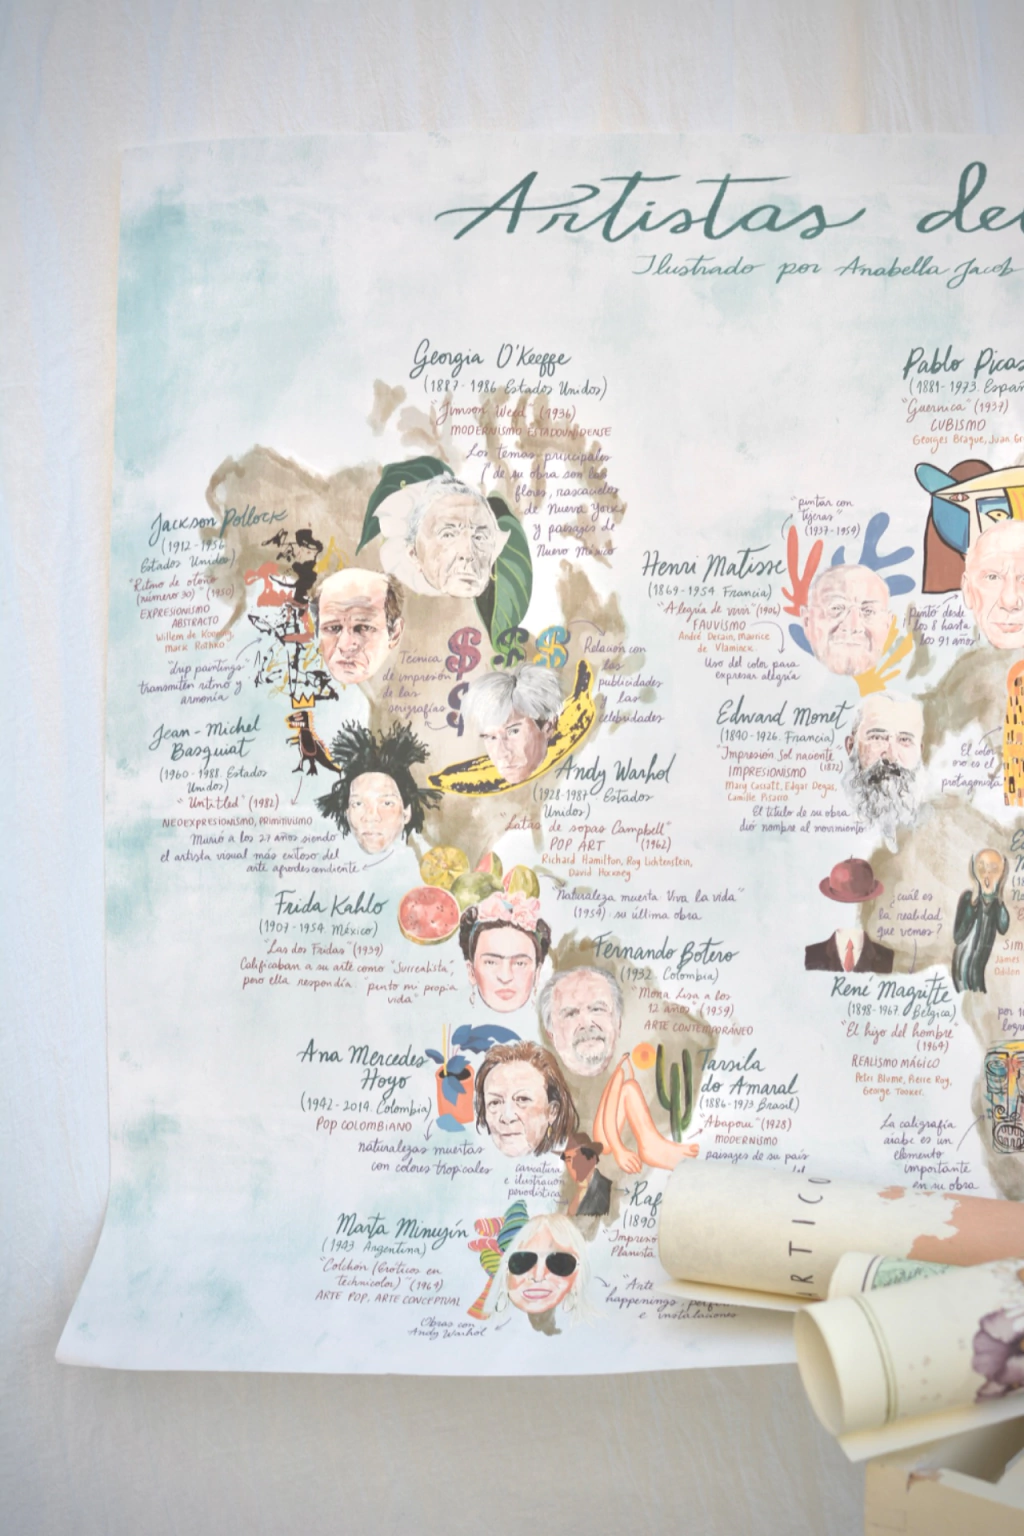 Artistas del
Ilustrado por Anabella Jacob
Georgia O'Keeffe
(1887-1986 Estados Unidos)
"Jimson Weed" (1936)
MODERNISMO ESTADOUNIDENSE
Los temas principales
de su obra son las
flores, rascacielos
de Nueva York
y paisajes de
Nuevo México
Jackson Pollock
(1912-1956
Estados Unidos)
"Ritmo de otoño
(número 30)" (1950)
EXPRESIONISMO
ABSTRACTO
Willem de Kooning,
Mark Rothko
"drip paintings"
transmiten ritmo y
armonía
Técnica
de impresión
de las
serigrafías
Relación con
las
publicidades
las
celebridades
Jean-Michel
Basquiat
(1960-1988. Estados
Unidos)
"Untitled" (1982)
NEOEXPRESIONISMO, PRIMITIVISMO
Murió a los 27 años siendo
el artista visual más exitoso del
arte afrodescendiente
Andy Warhol
(1928-1987. Estados
Unidos)
"Latas de sopas Campbell"
POP ART (1962)
Richard Hamilton, Roy Lichtenstein,
David Hockney
Frida Kahlo
(1907-1954. México)
"Las dos Fridas" (1939)
Calificaban a su arte como "Surrealista",
pero ella respondía "pinto mi propia
vida"
"Naturaleza muerta Viva la vida"
(1954) su última obra
Fernando Botero
(1932. Colombia)
"Mona Lisa a los
12 años" (1959)
ARTE CONTEMPORÁNEO
Ana Mercedes
Hoyo
(1942-2014. Colombia)
POP COLOMBIANO
naturalezas muertas
con colores tropicales
Tarsila
do Amaral
(1886-1973 Brasil)
"Abaporu" (1928)
MODERNISMO
paisajes de su país
caricatura
e ilustración
periodística
Raf
(1890
"Impreso
Planista
Marta Minujín
(1943 Argentina)
"Colchón (Eróticos en
technicolor)" (1964)
ARTE POP, ARTE CONCEPTUAL
Obras con
Andy Warhol
"Arte
happenings, perfor
e instalaciones
Henri Matisse
(1869-1954 Francia)
"Alegría de vivir" (1906)
FAUVISMO
André Derain, Maurice
de Vlaminck.
Uso del color para
expresar alegría
"pintar con
tijeras"
(1937-1954)
Pablo Picas
(1881-1973. Españ
"Guernica" (1937)
CUBISMO
Georges Braque, Juan Gr
pintó desde
los 8 hasta
los 91 años
Edward Monet
(1840-1926. Francia)
"Impresión Sol naciente"
(1872)
IMPRESIONISMO
Mary Cassatt, Edgar Degas,
Camille Pisarro
El título de su obra
dió nombre al movimiento
El color
no es el
protagonista
¿cuál es
la realidad
que vemos?
René Magritte
(1898-1967 Bélgica)
"El hijo del hombre"
(1964)
REALISMO MÁGICO
Peter Blume, Pierre Roy,
George Tooker.
La caligrafía
árabe es un
elemento
importante
en su obra
RTICO